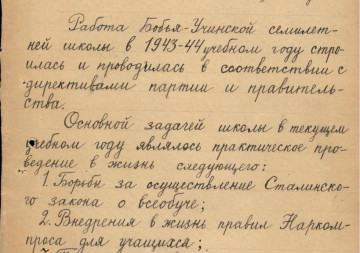 Работа Бобья-Учинской семилет-
ней школы в 1943-44 учебном году стро-
илась и проводилась в соответствии с
директивами партии и правитель-
ства.
Основной задачей школы в текущем
учебном году являлось практическое про-
ведение в жизнь следующего:
1. Борьбы за осуществление Сталинско-
го закона о всеобуче;
2. Внедрения в жизнь правил Нарком-
проса для учащихся;